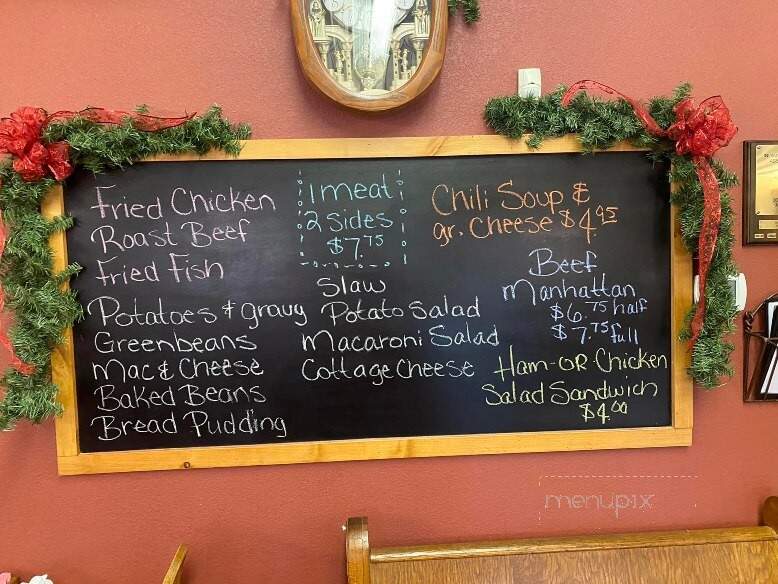 Fried Chicken
Roast Beef
Fried Fish
1 meat
2 Sides
$7.75
Chili Soup &
gr. Cheese $4.95
Potatoes & gravy
Greenbeans
Mac & Cheese
Baked Beans
Bread Pudding
Slaw
Potato Salad
Macaroni Salad
Cottage Cheese
Beef
Manhattan
$6.75 half
$7.75 full
Ham-OR-Chicken
Salad Sandwich
$4.00
menupix